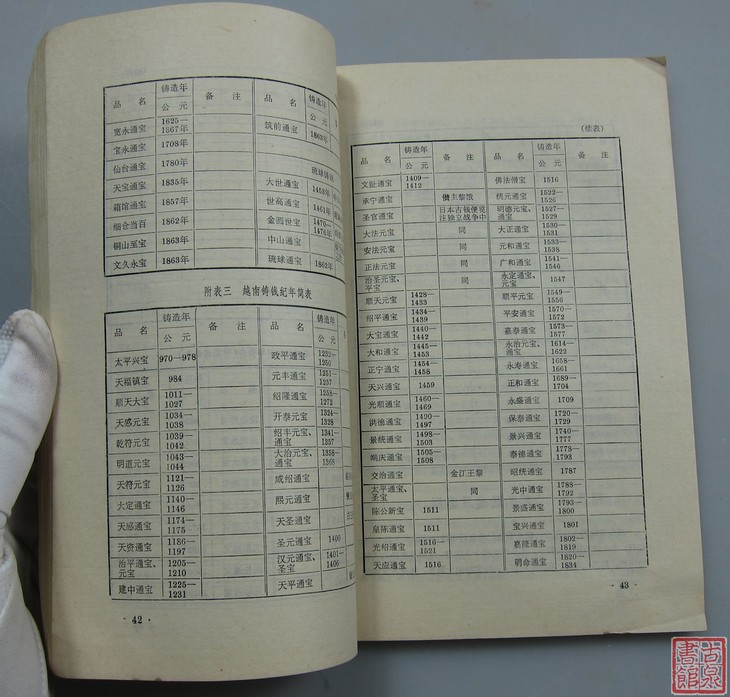 品 名 铸造年 公元 备 注 品 名 铸造年 公元
宽永通宝 1625—1867年 筑前通宝 1863年
宝永通宝 1708年
仙台通宝 1780年 琉球铸钱
天宝通宝 1835年 大世通宝 1458年
箱馆通宝 1857年 世高通宝 1461年
细仓当百 1862年 金圆世宝 1470—1476年
铜山至宝 1863年 中山通宝
文久永宝 1863年 琉球通宝 1862年
附表三 越南铸钱纪年简表
品 名 铸造年 公元 备 注 品 名 铸造年 公元
太平兴宝 970—978 政平通宝 1232—1250
天福镇宝 984 元丰通宝 1251—1257
顺天大宝 1011—1027 绍隆通宝 1258—1272
天感元宝 1034—1038 开泰元宝 1324—1328
乾符元宝 1039—1042 绍丰元宝、通宝 1341—1357
明道元宝 1043—1044 大冶元宝、通宝 1358—1368
天符元宝 1121—1126 咸绍通宝
大定通宝 1140—1146 熙元通宝
天感通宝 1174—1175 天圣通宝
天资通宝 1186—1197 圣元通宝 1400
治平通宝、元宝 1205—1210 汉元通宝、圣宝 1401—1406
建中通宝 1225—1231 天平通宝
· 42 ·
(续表)
品 名 铸造年 公元 备 注 品 名 铸造年 公元 备 注
交趾通宝 1409—1412 佛法僧宝 1516
承宁通宝 僭主黎饿 统元通宝 1522—1526
圣官通宝 日本古钱便览注独立战争中 明德元宝、通宝 1527—1529
大法元宝 同 大正通宝 1530—1531
安法元宝 同 元和通宝 1533—1538
正法元宝 同 广和通宝 1541—1546
治圣元宝、平宝 同 永定通宝、元宝 1547
顺天元宝 1428—1433 顺平元宝 1549—1556
绍平通宝 1434—1439 平安通宝 1570—1572
大宝通宝 1440—1442 嘉泰通宝 1573—1577
大和通宝 1443—1453 永治元宝、通宝 1614—1622
延宁通宝 1454—1458 永寿通宝 1658—1661
天兴通宝 1459 正和通宝 1689—1704
光顺通宝 1460—1469 永盛通宝 1709
洪德通宝 1490—1497 保泰通宝 1720—1729
景统通宝 1498—1503 景兴通宝 1740—1777
端庆通宝 1505—1508 泰德通宝 1778—1793
交治通宝 金江王黎 昭统通宝 1787
太平通宝、圣宝 同 光中通宝 1788—1792
陈公新宝 1511 景盛通宝 1793—1800
皇陈通宝 1511 宝兴通宝 1801
光绍通宝 1516—1521 嘉隆通宝 1802—1819
天应通宝 1516 明命通宝 1820—1834
· 43 ·
古泉
書館